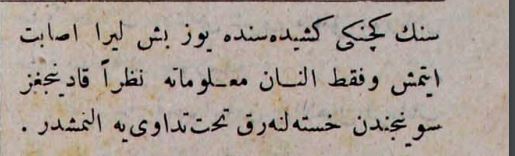 سنك كچنكی كشیده‌سنده یوز بش لیرا اصابت
ایتمش وفقط النان معلوماته نظراً قادینجغز
سونجندن خسته‌لنه‌رق تحت تداوی‌یه النمشدر .